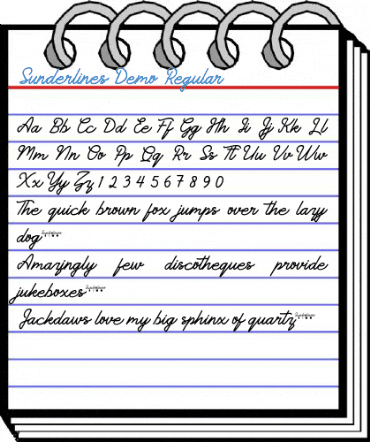 Sunderlines Demo Regular
Aa Bb Cc Dd Ee Ff Gg Hh Ii Jj Kk Ll
Mm Nn Oo Pp Qq Rr Ss Tt Uu Vv Ww
Xx Yy Zz 1 2 3 4 5 6 7 8 9 0
The quick brown fox jumps over the lazy
dog
Amazingly few discotheques provide
jukeboxes
Jackdaws love my big sphinx of quartz